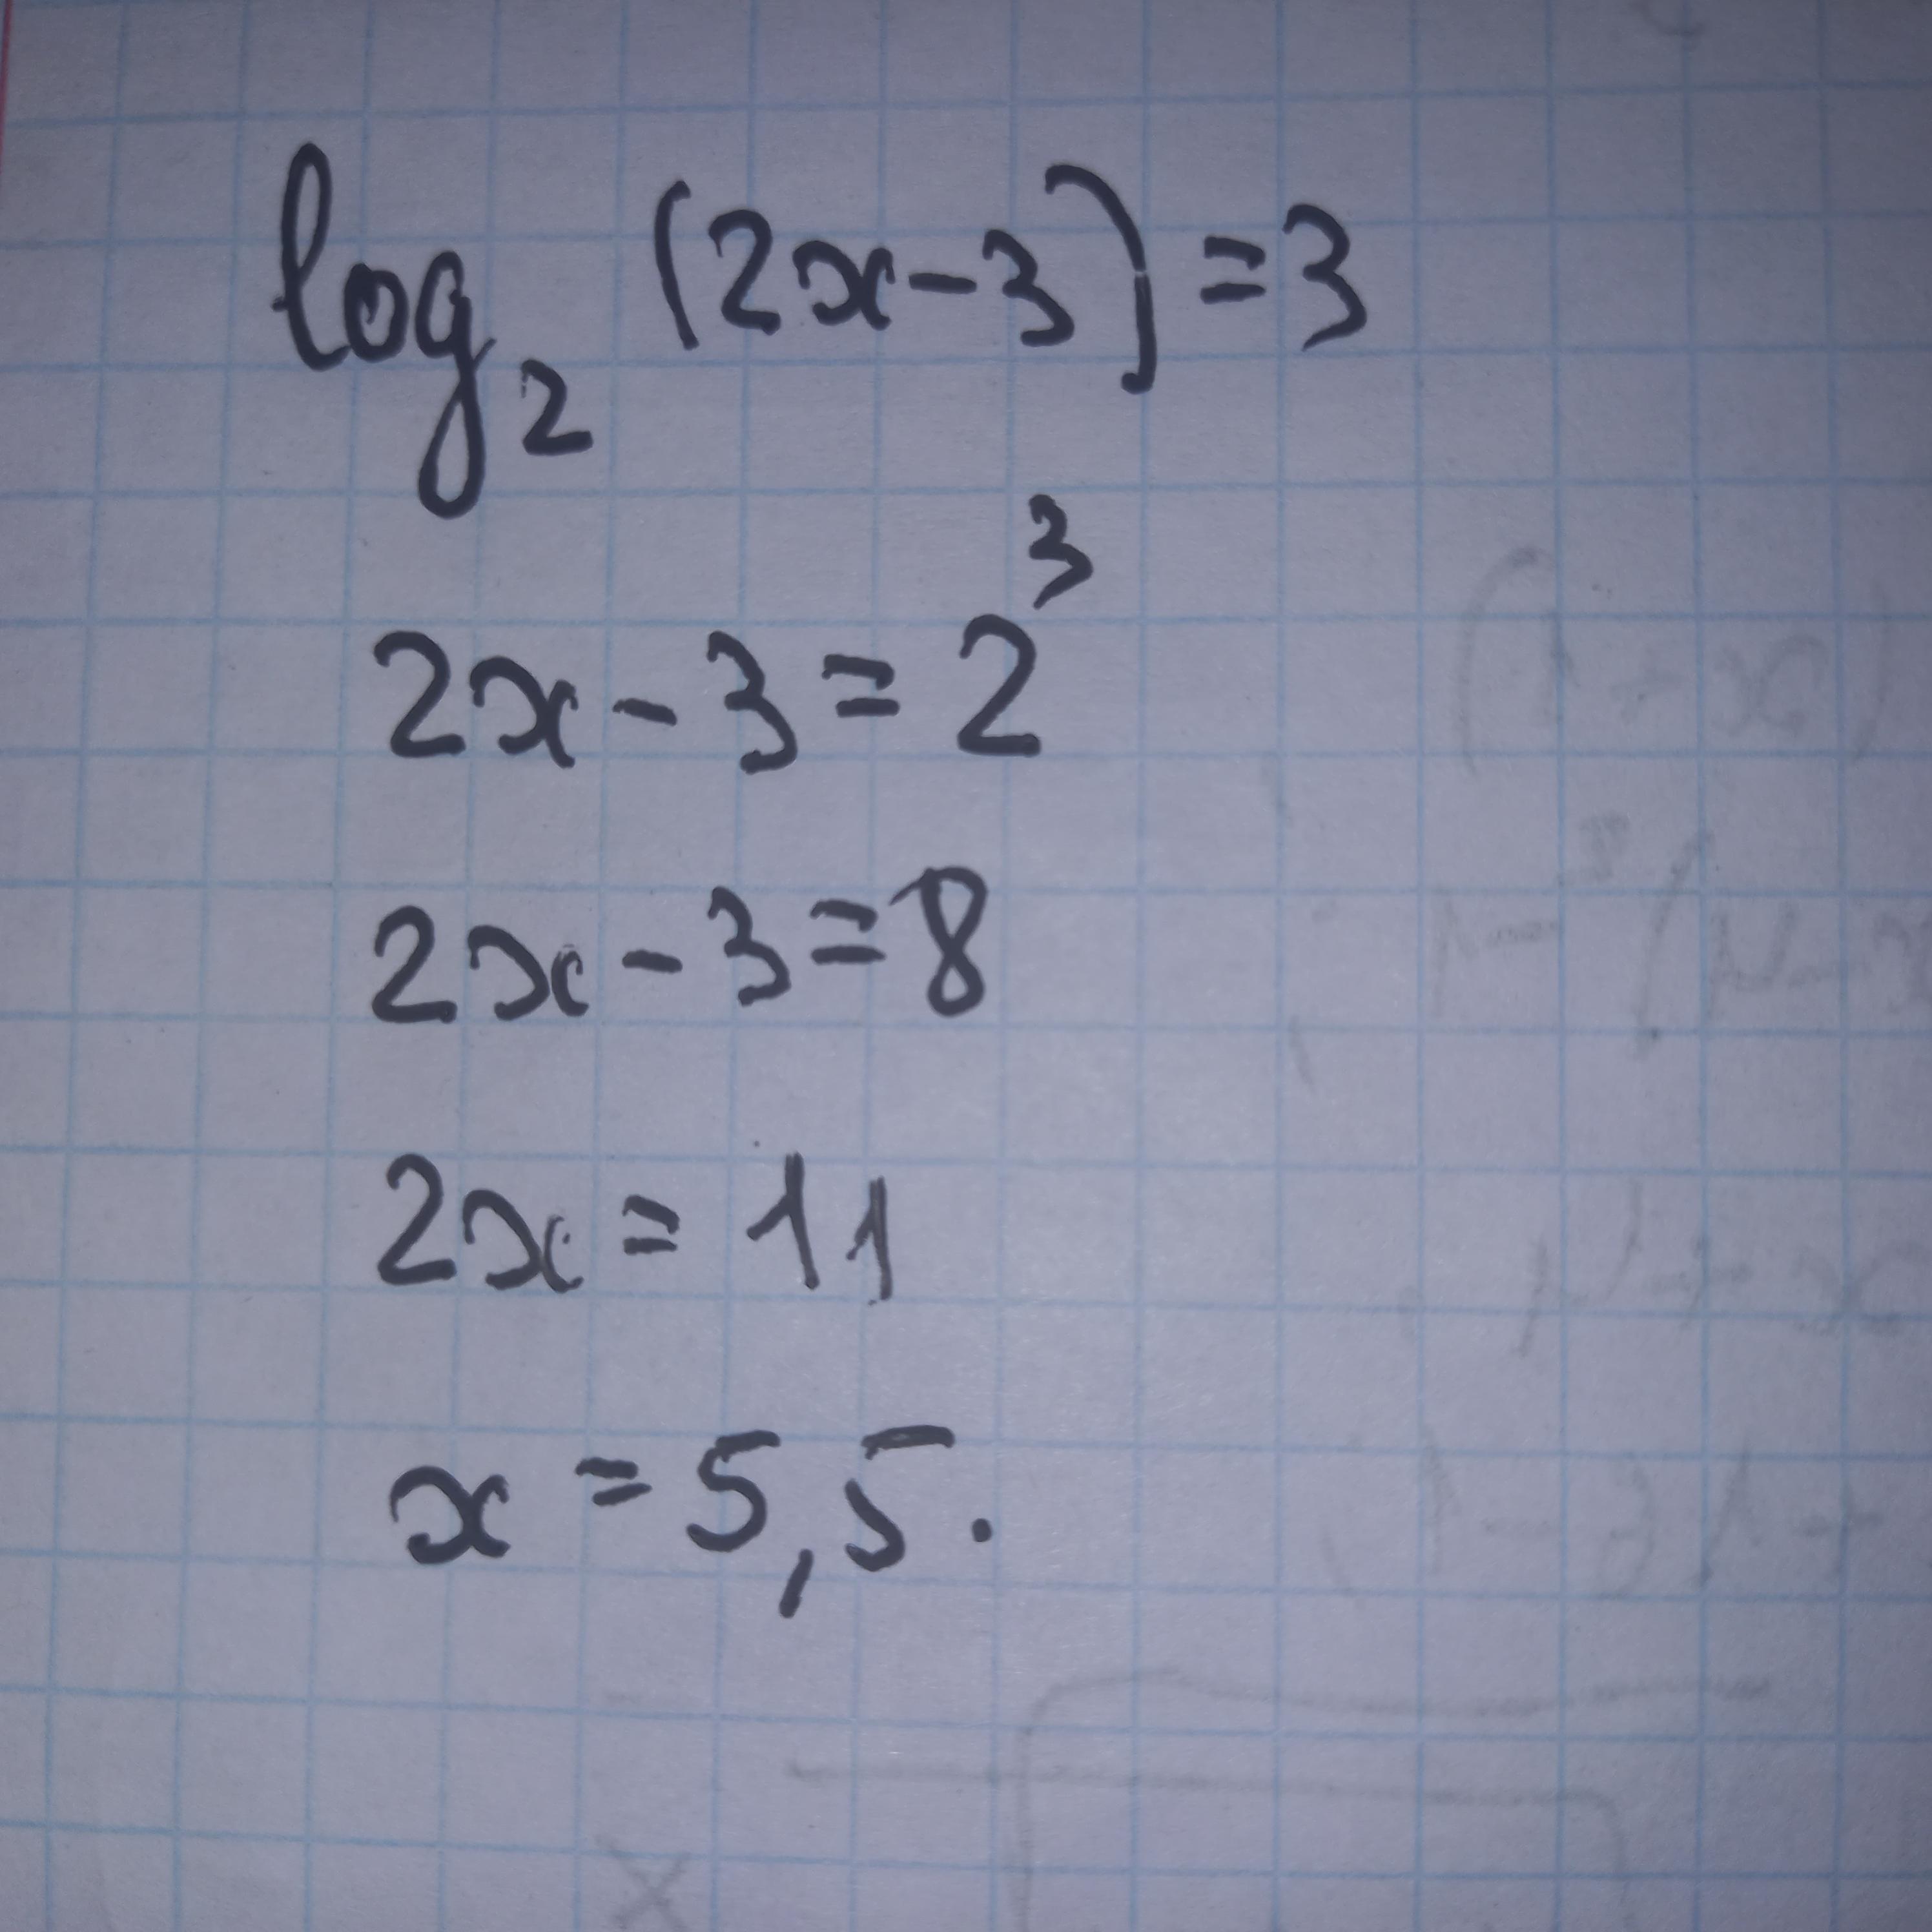 log₂ (2x-3)=3
2x-3=2³
2x-3=8
2x=11
x=5,5.